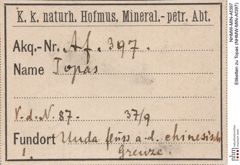 K. k. naturh. Hofmus. Mineral.-petr. Abt.
Akq.-Nr. Af. 397.
Name Topas
V. d. N 87. 37/9
Fundort Unda fluss a. d. chinesisch.
Grenze.
NHMW-MIN-Af397
Etiketten zu Topas (NHMW-MIN-Af397)